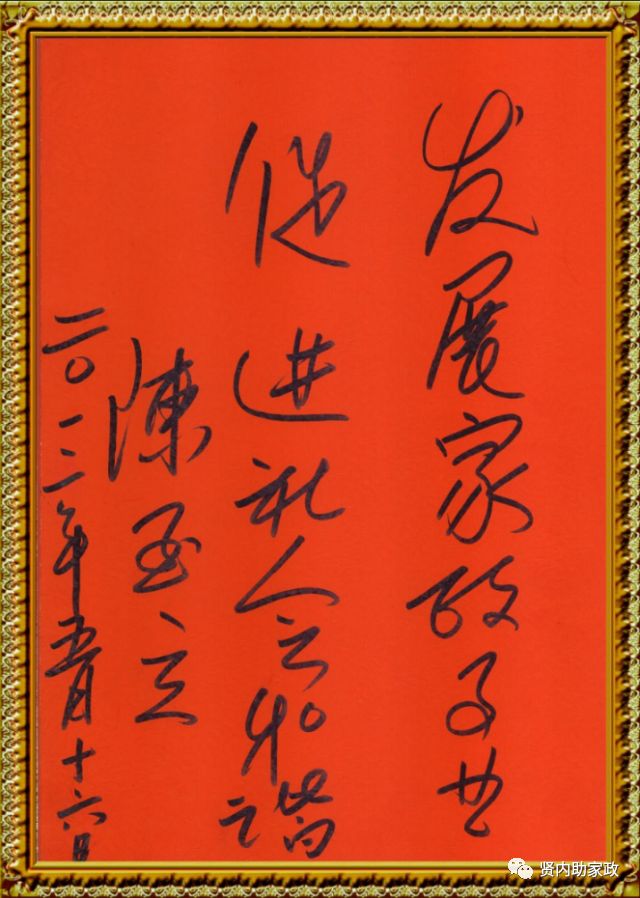 发展家政事业
促进社会和谐
陈至立
二〇一二年五月十六日
贤内助家政